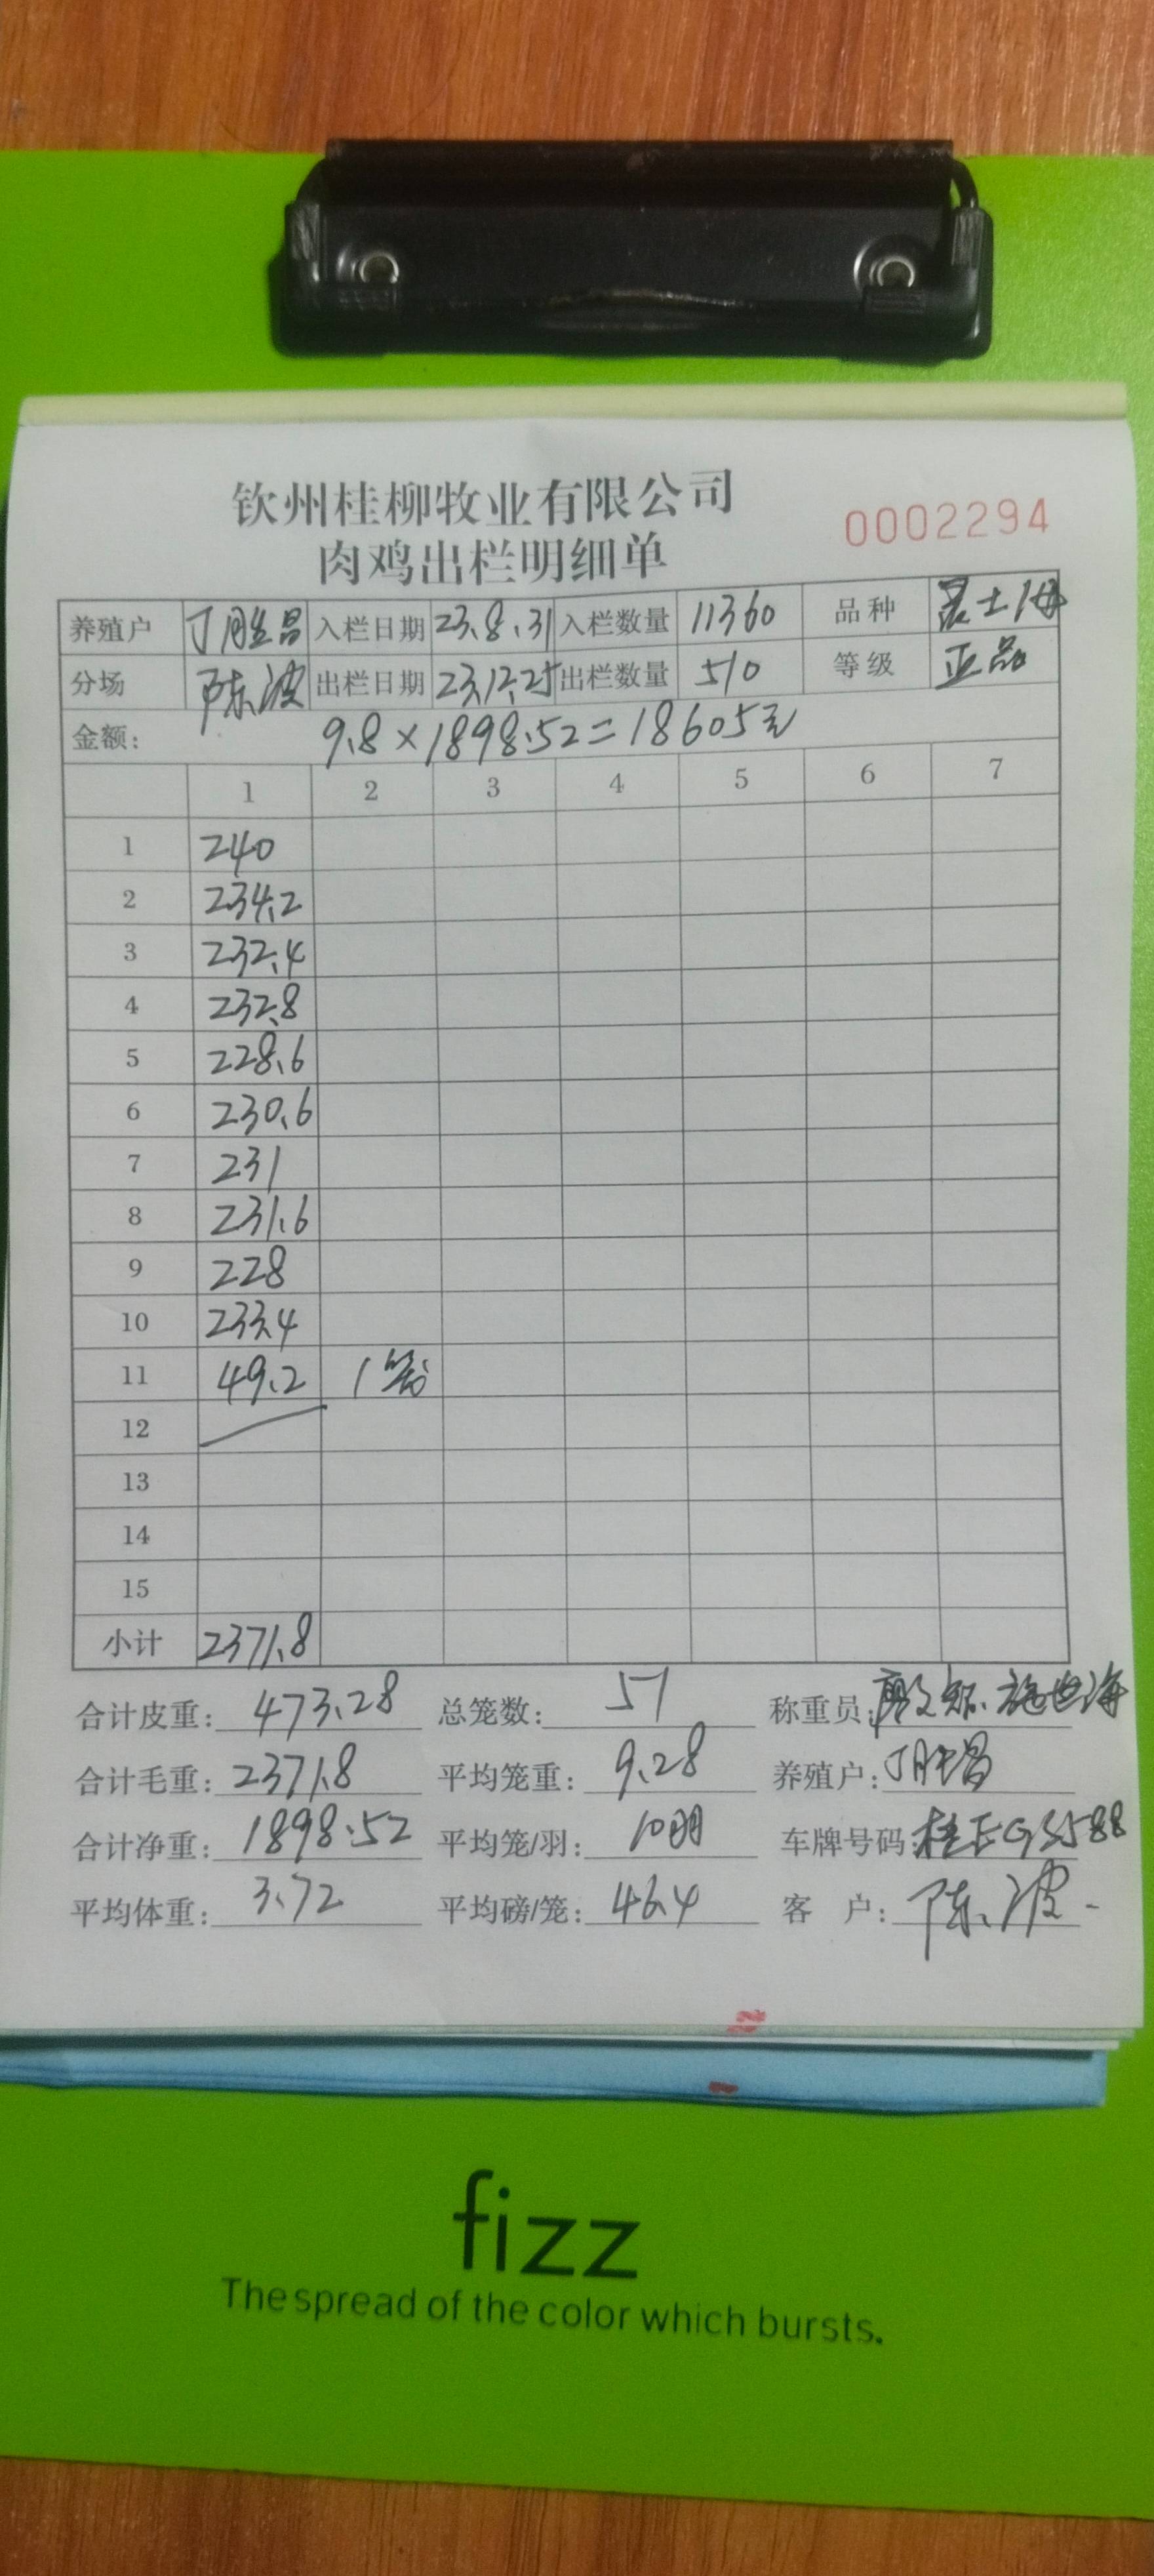 钦州桂柳牧业有限公司
0002294
肉鸡出栏明细单
养殖户 丁胜昌 入栏日期 23.8.31 入栏数量 11360 品种
分场 陈波 出栏日期 23.12.25 出栏数量 510 等级 正品
金额: 9.8×1898.52=18605元
1 2 3 4 5 6 7
1 240
2 234.2
3 232.4
4 232.8
5 228.6
6 230.6
7 231
8 231.6
9 228
10 233.4
11 49.2 1笼
12
13
14
15
小计 2371.8
合计皮重: 473.28 总笼数: 51 称重员:
合计毛重: 2371.8 平均笼重: 9.28 养殖户: 丁胜昌
合计净重: 1898.52 平均笼/羽: 10羽 车牌号码: 桂EGS588
平均体重: 3.72 平均磅/笼: 46.4 客 户: 陈波
fizz
The spread of the color which bursts.